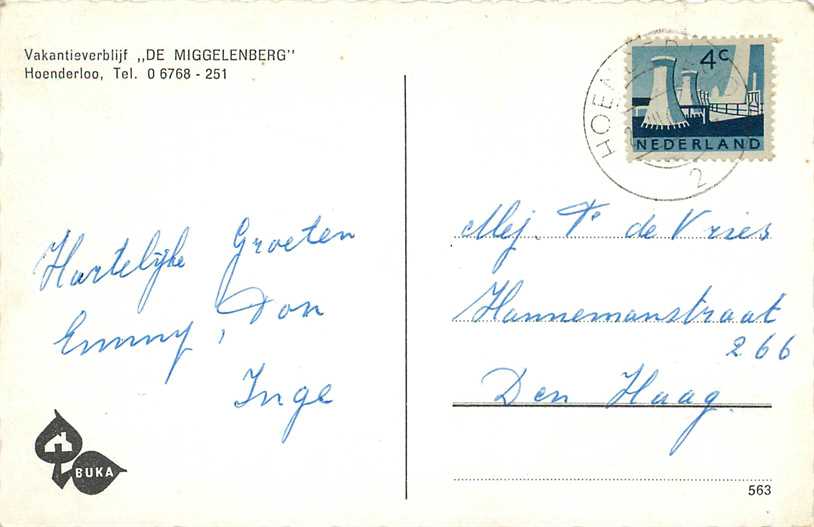 Vakantieverblijf „DE MIGGELENBERG"
Hoenderloo, Tel. 0 6768 - 251
4c
NEDERLAND
2
Hartelijke Groeten
Emmy, Ton
Inge
Mej. T. de Vries
Hannemanstraat
266
Den Haag
BUKA
563